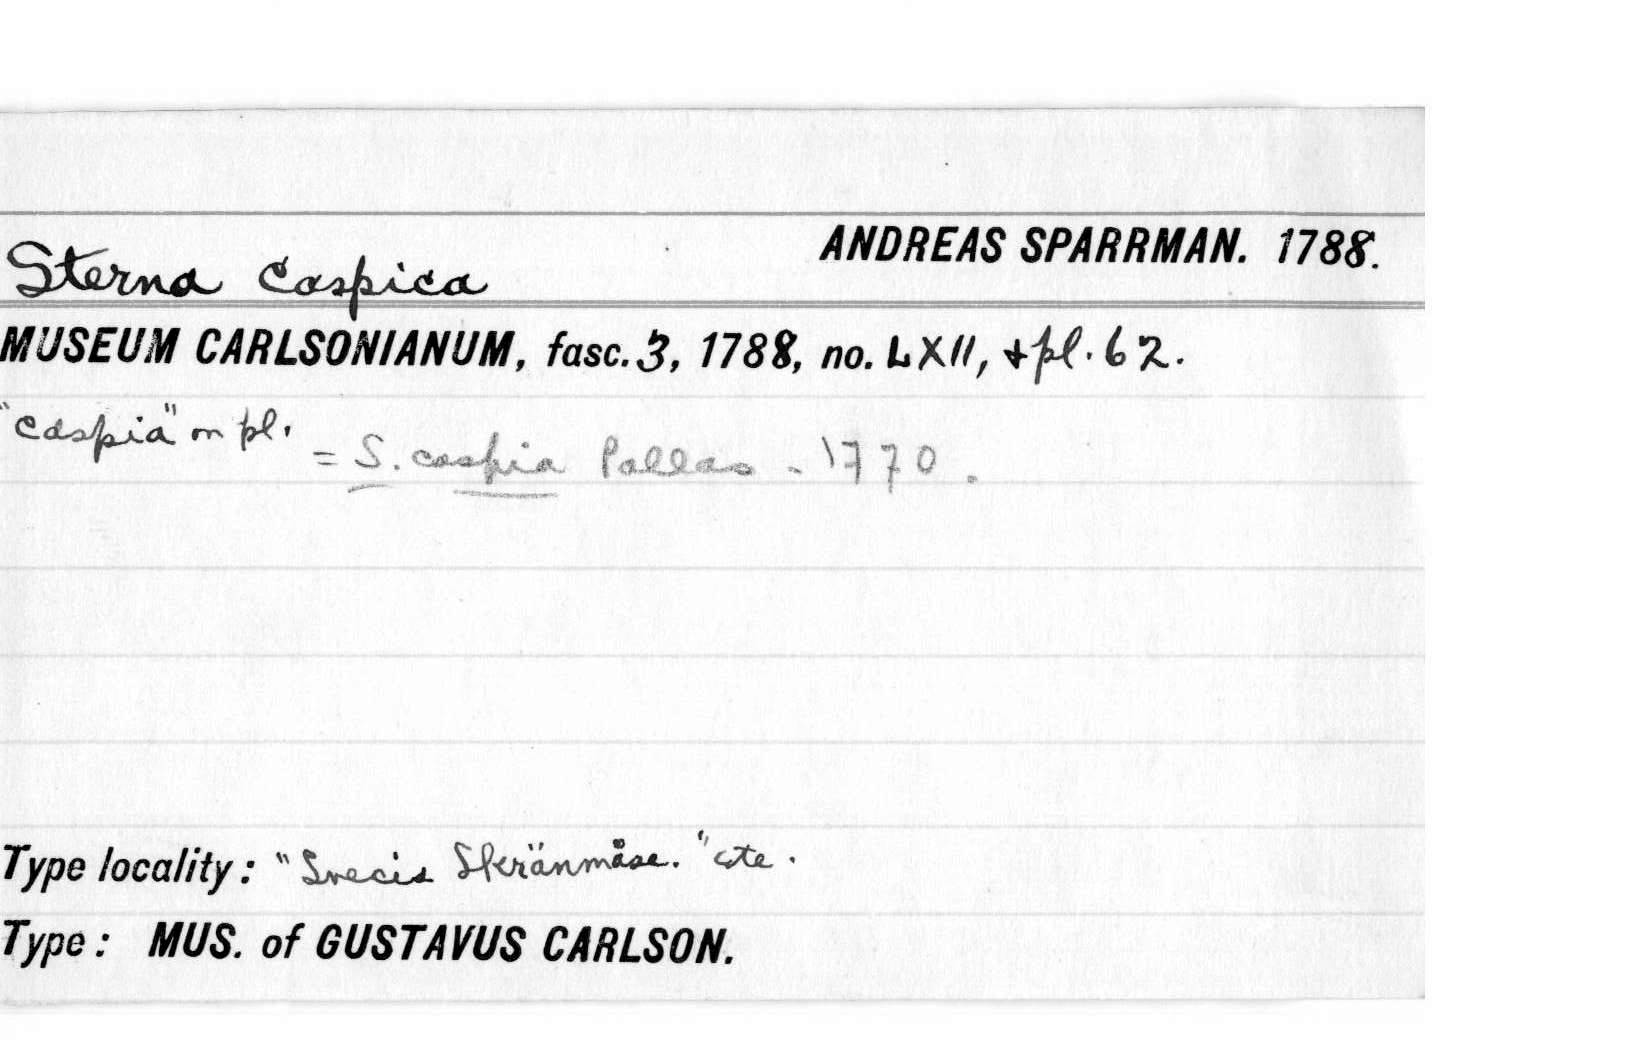 ANDREAS SPARRMAN. 1788.
Sterna Caspica
MUSEUM CARLSONIANUM, fasc. 3, 1788, no. LXII, + pl. 62.
"Caspia" on pl.
= S. caspia Pallas - 1770.
Type locality: "Svecis Skränmåse." etc.
Type: MUS. of GUSTAVUS CARLSON.